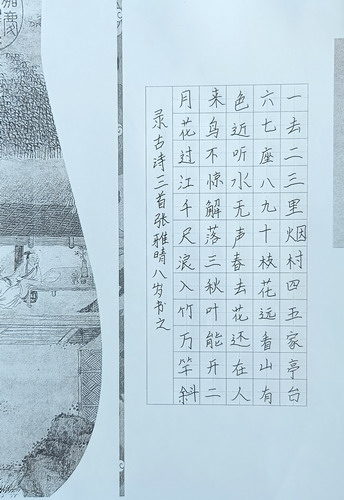 一去二三里烟村四五家亭台
六七座八九十枝花远看山有
色近听水无声春去花还在人
来鸟不惊解落三秋叶能开二
月花过江千尺浪入竹万竿斜
录古诗三首张雅晴八岁书之